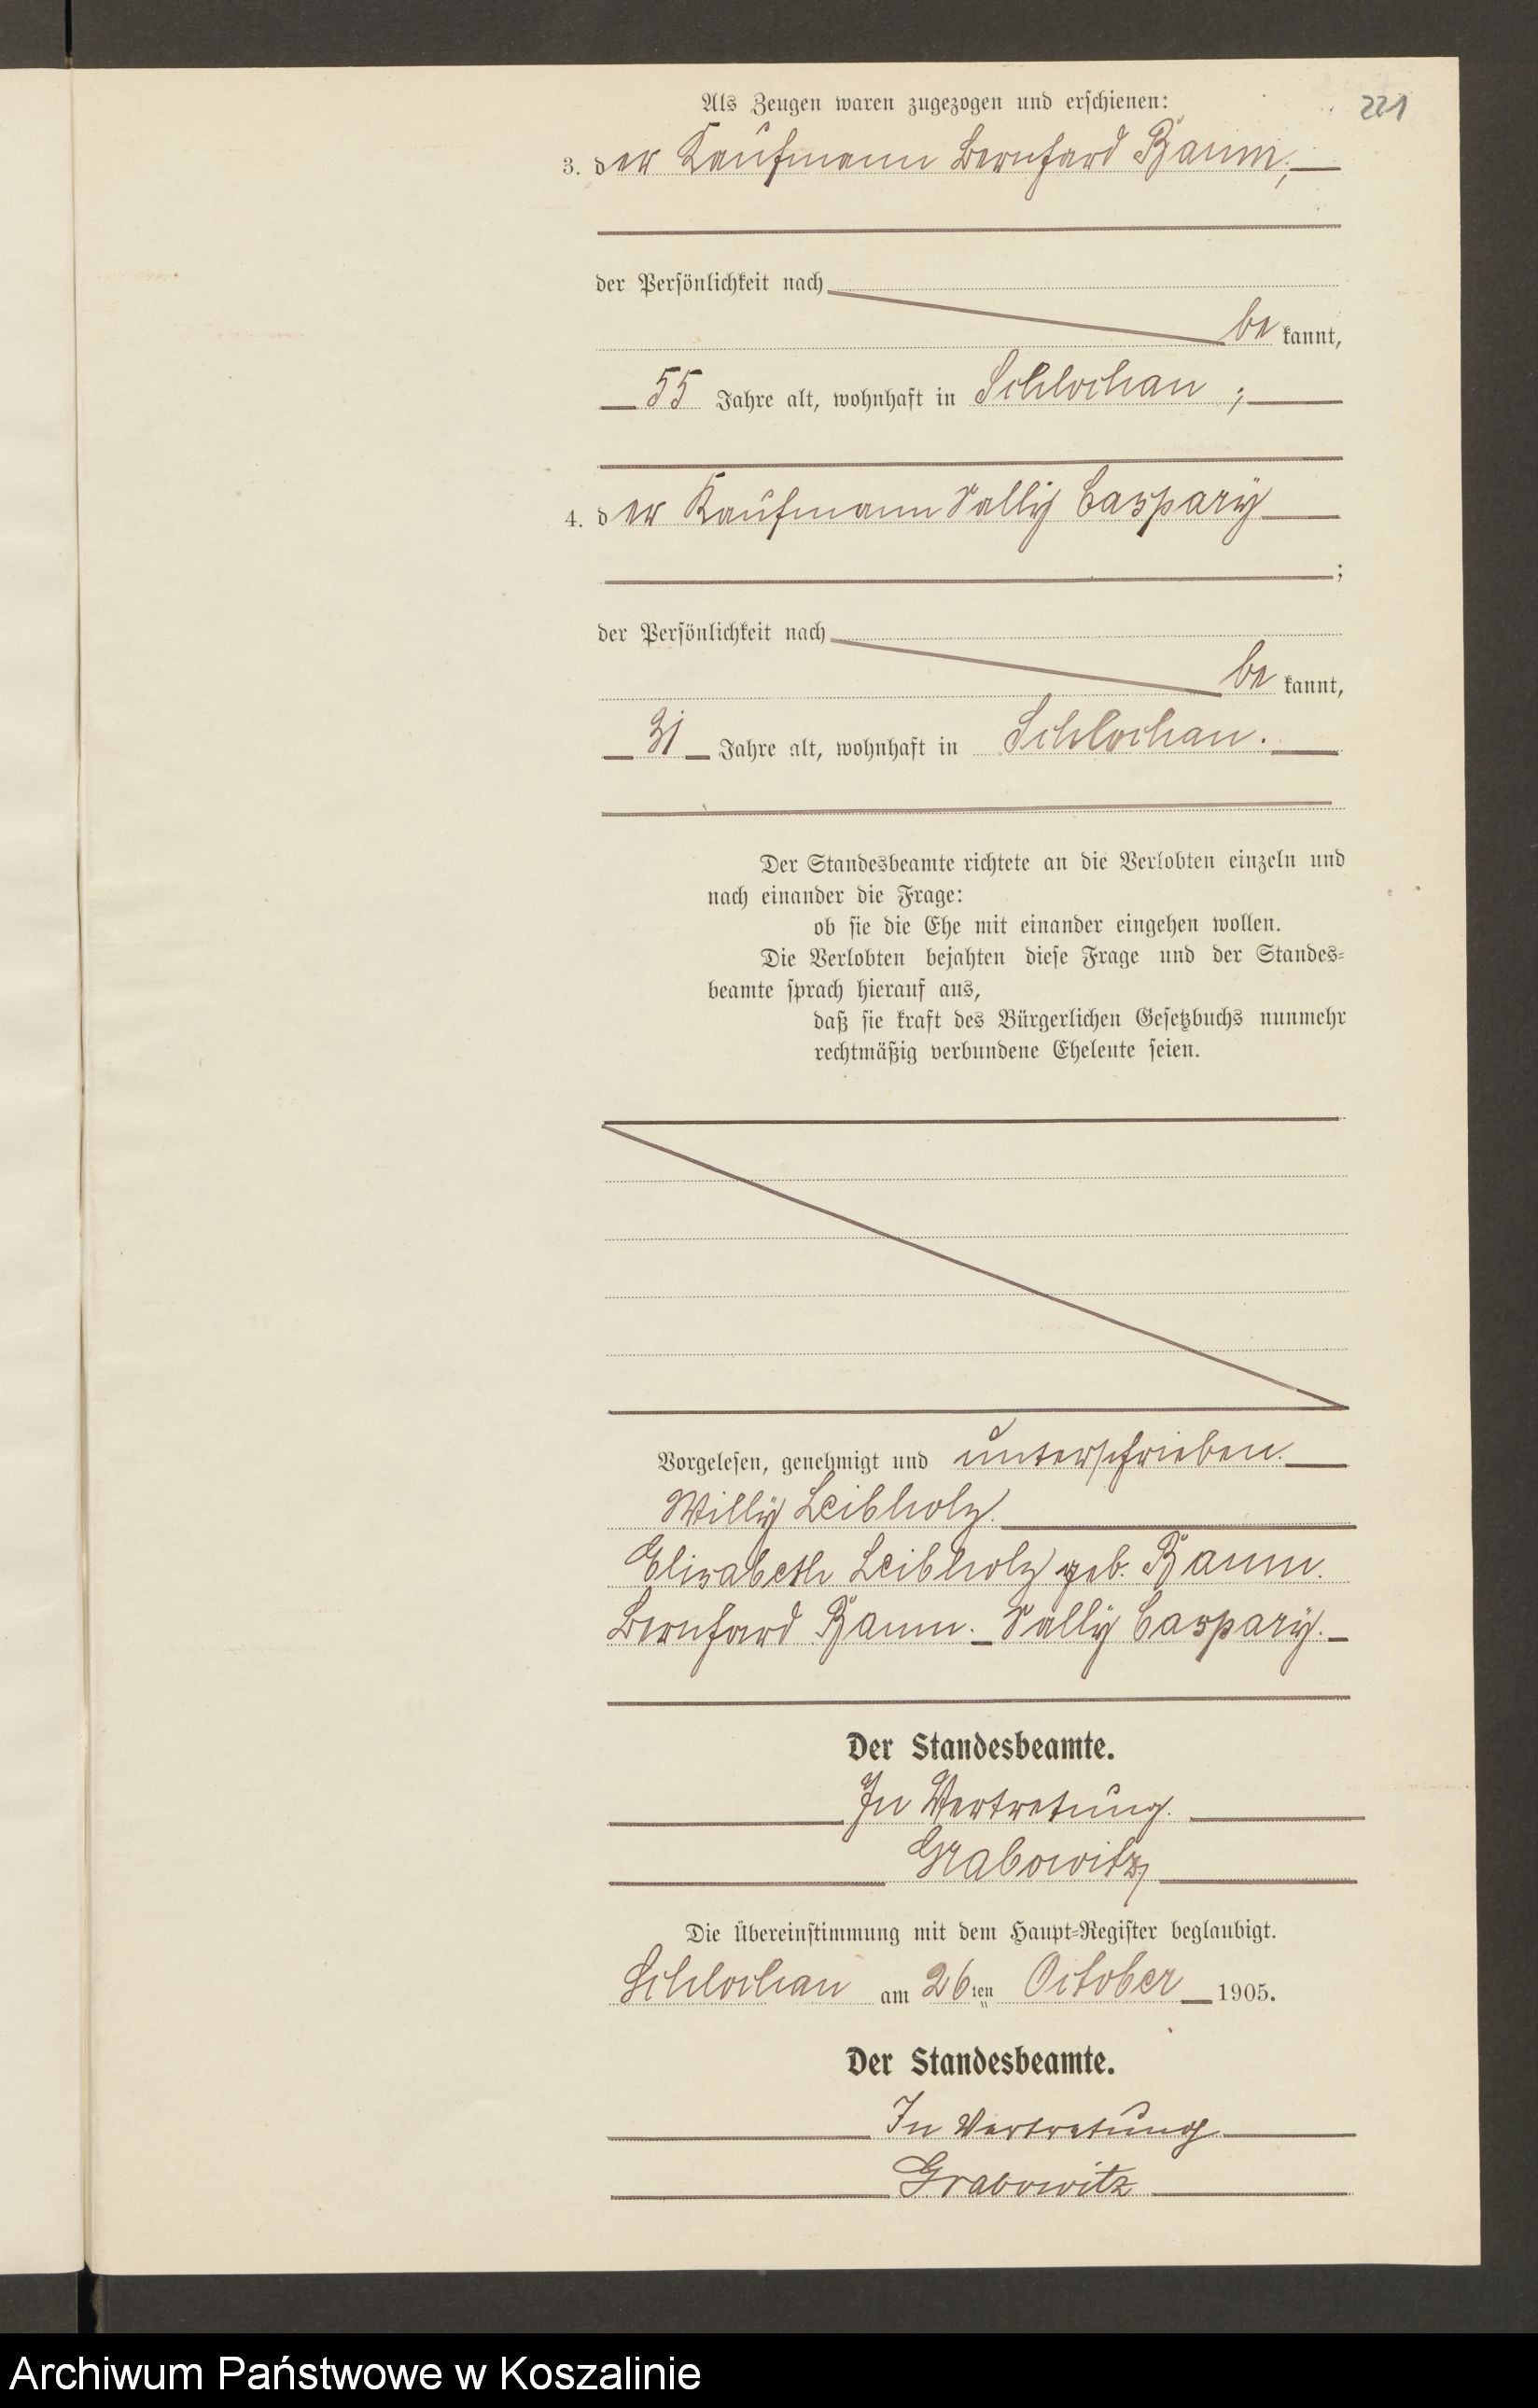 Als Zeugen waren zugezogen und erschienen:
221
3. der Kaufmann Bernhard Baum;
der Persönlichkeit nach
be kannt,
55 Jahre alt, wohnhaft in Schlochau;
4. der Kaufmann Sally Caspary
;
der Persönlichkeit nach
be kannt,
31 Jahre alt, wohnhaft in Schlochau.
Der Standesbeamte richtete an die Verlobten einzeln und
nach einander die Frage:
ob sie die Ehe mit einander eingehen wollen.
Die Verlobten bejahten diese Frage und der Standes-
beamte sprach hierauf aus,
daß sie kraft des Bürgerlichen Gesetzbuchs nunmehr
rechtmäßig verbundene Eheleute seien.
Vorgelesen, genehmigt und unterschrieben.
Willy Leibholz.
Elisabeth Leibholz geb. Baum.
Bernhard Baum. Sally Caspary.
Der Standesbeamte.
In Vertretung.
Grabowitz
Die Übereinstimmung mit dem Haupt-Register beglaubigt.
Schlochau am 26ten October 1905.
Der Standesbeamte.
In Vertretung
Grabowitz
Archiwum Państwowe w Koszalinie